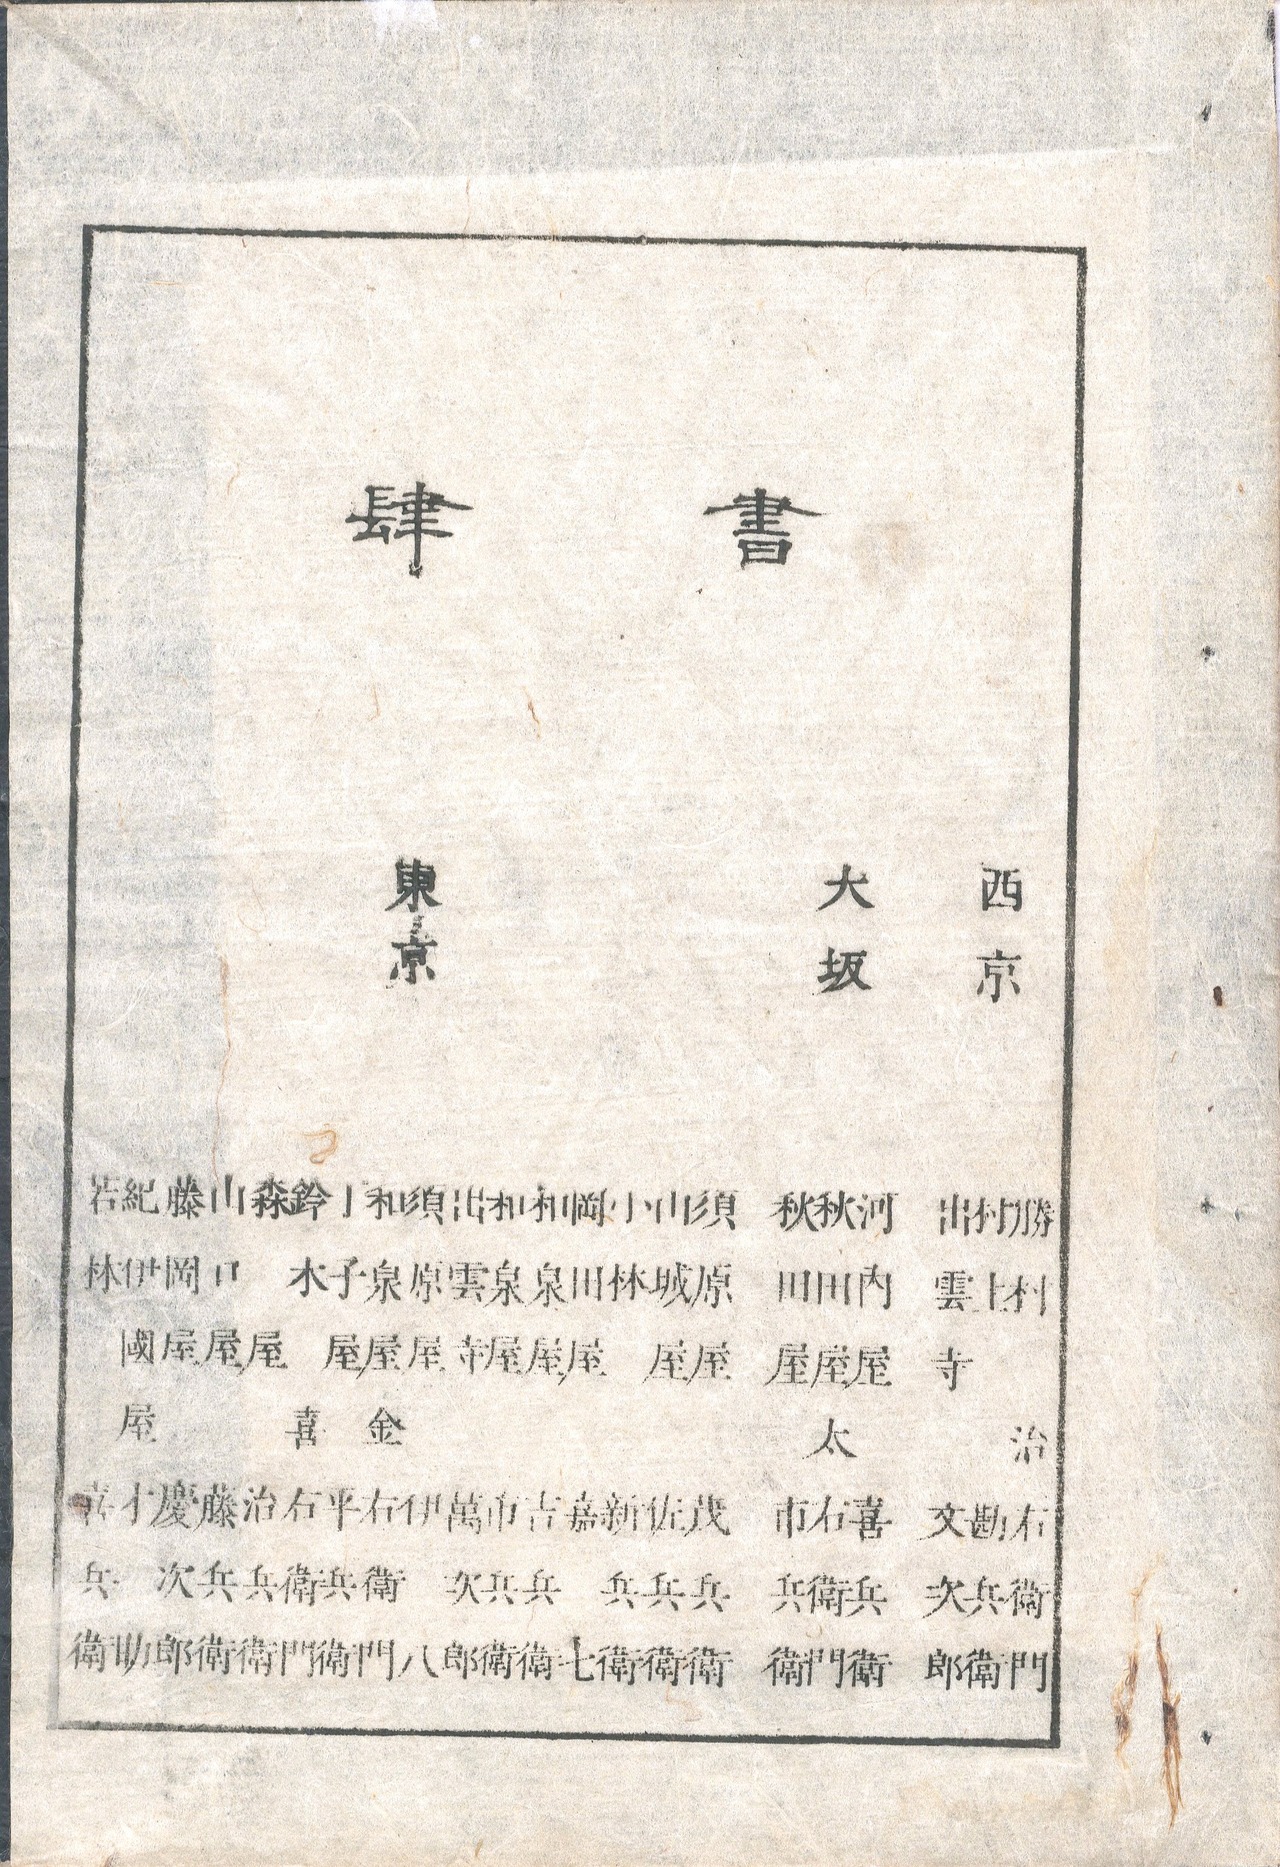 書肆
西京
勝村治右衛門
村上勘兵衛
出雲寺文次郎
大坂
河内屋喜兵衛
秋田屋太右衛門
秋田屋市兵衛
東京
須原屋茂兵衛
山城屋佐兵衛
小林新兵衛
岡田屋嘉七
和泉屋吉兵衛
和泉屋市兵衛
出雲寺萬次郎
須原屋伊八
和泉屋金右衛門
丁子屋平兵衛
鈴木喜右衛門
森屋治兵衛
山口屋藤兵衛
藤岡屋慶次郎
紀伊國屋才助
若林喜兵衛